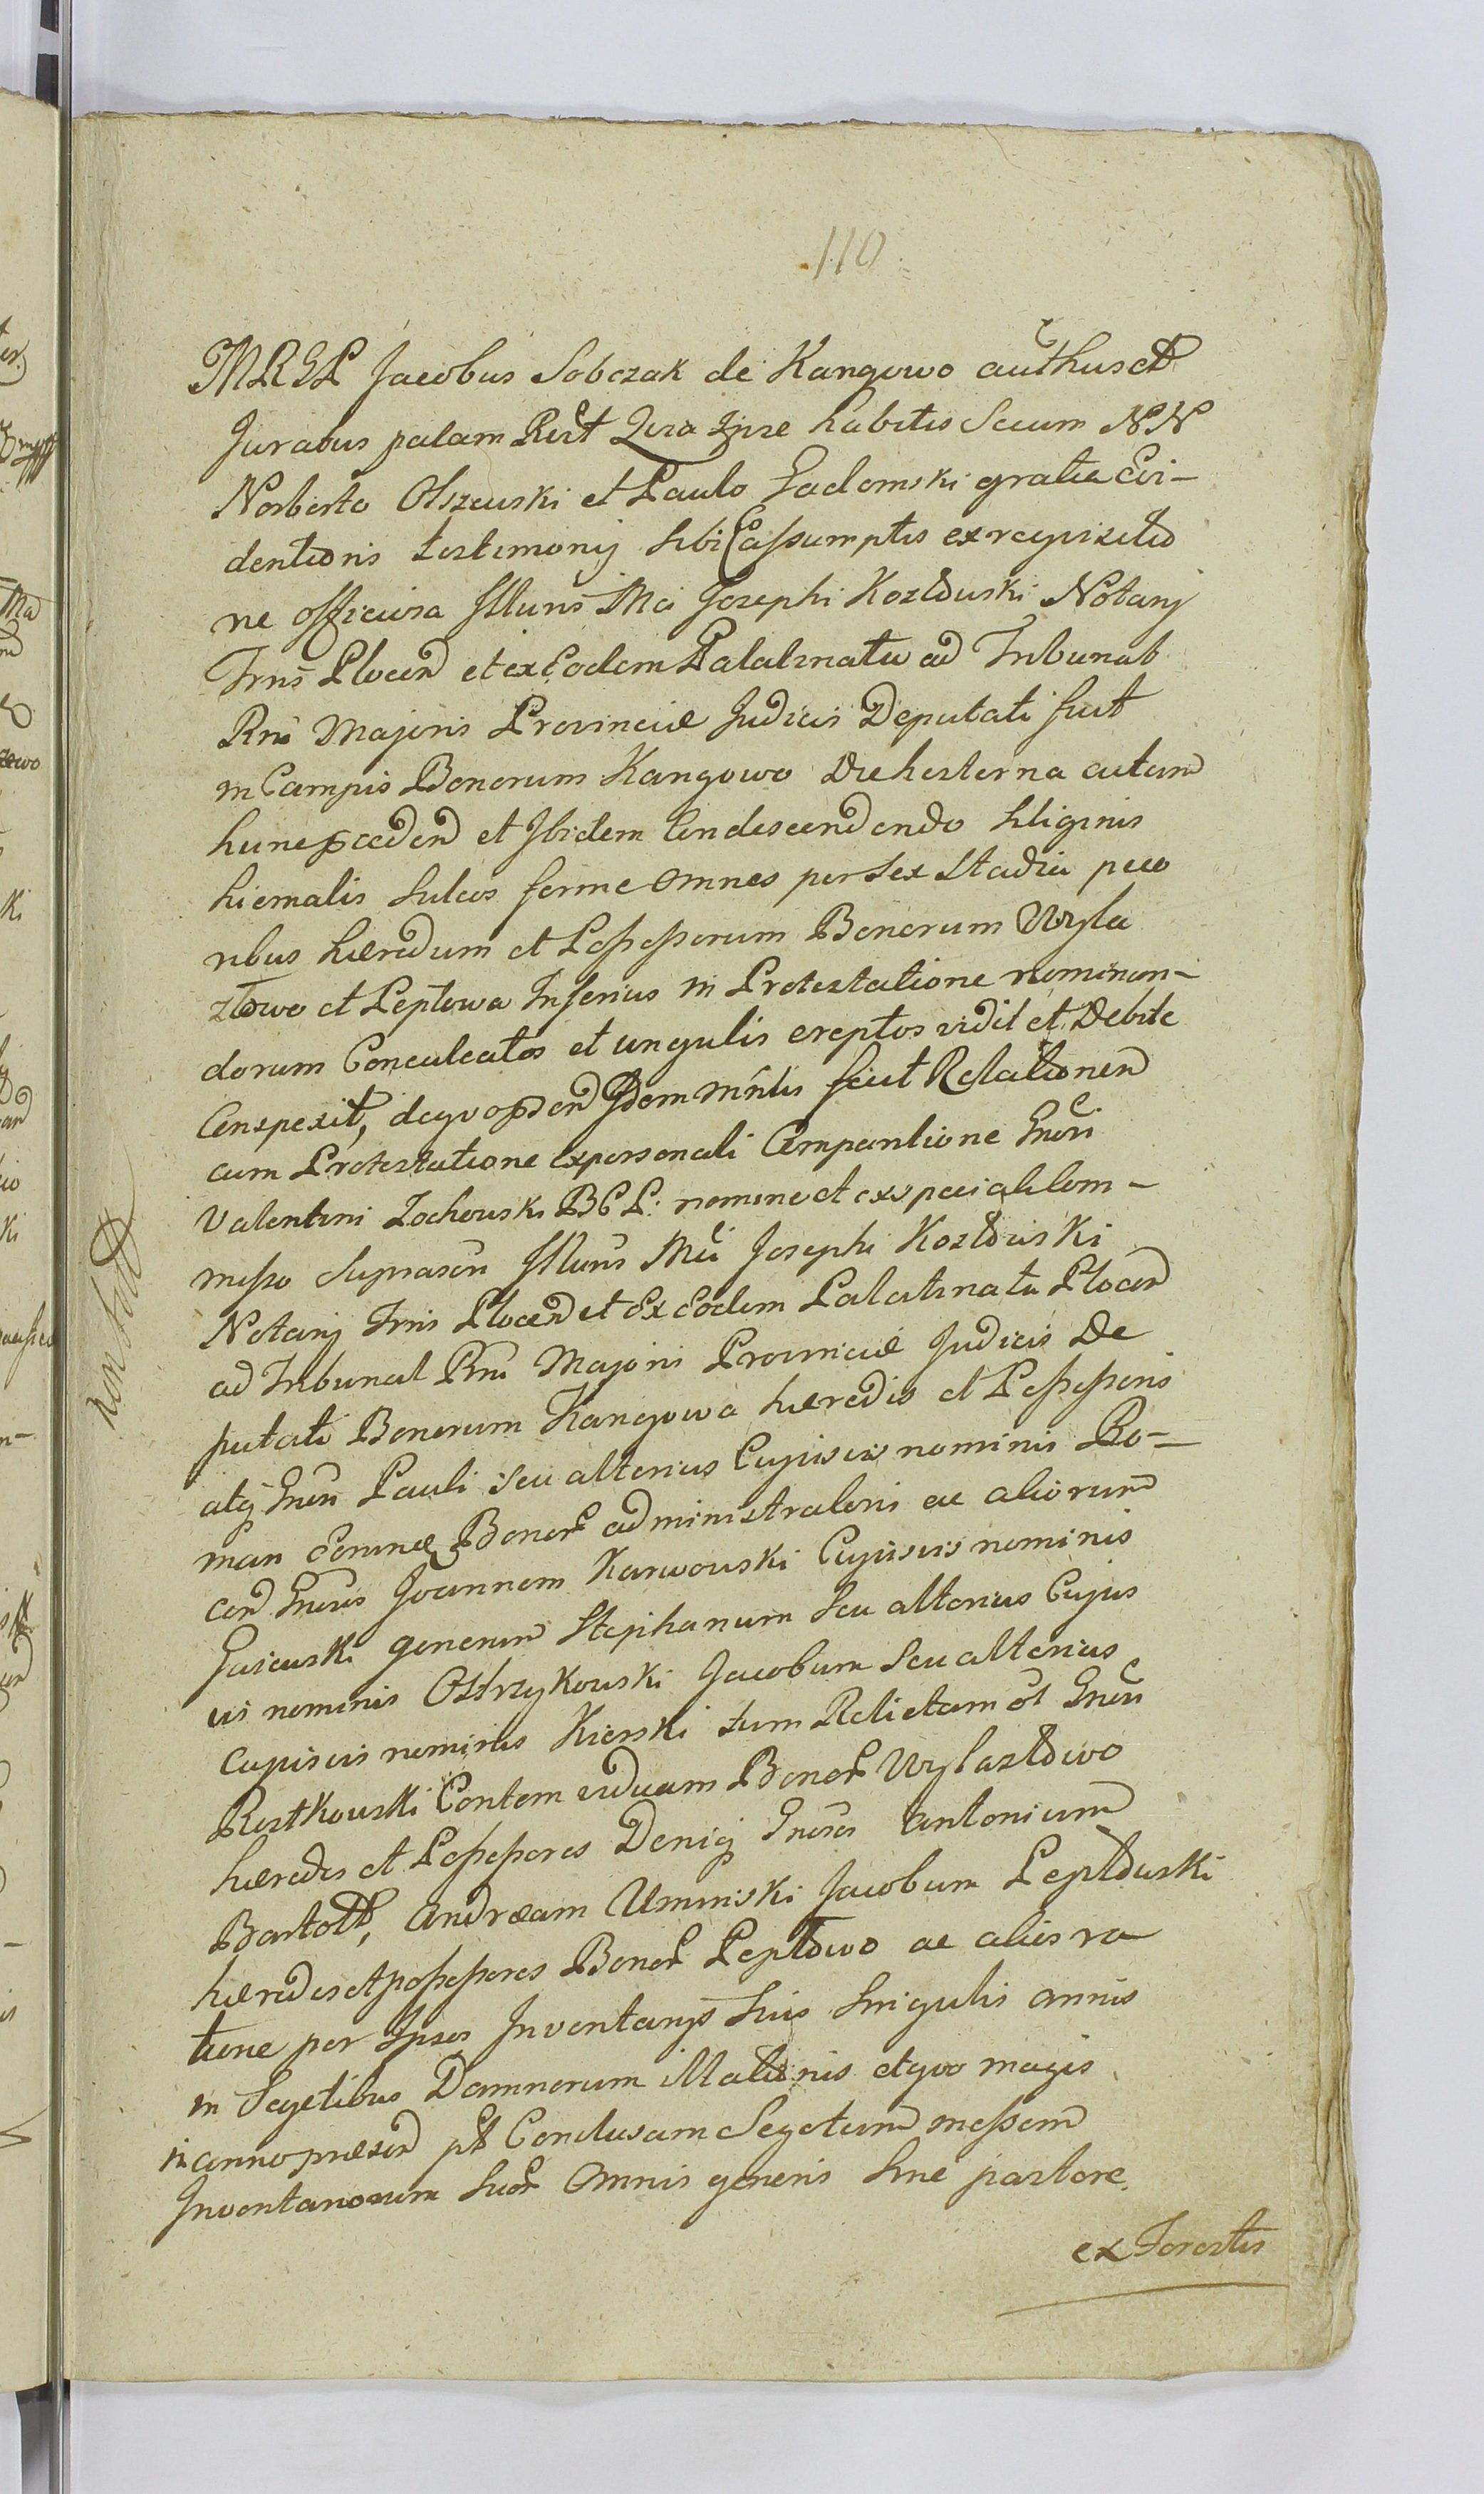 110
MRGL Jacobus Sobczak de Kangowo authus et
Juratus palam Rert Quia Ipse habitis Secum NN
Norberto Olszewski et Paulo Gadomski gratia Evi-
dentioris testimonij sibi assumptis ex requisitio
ne officiosa Illuns Mci Josephi Kozłowski Notarij
Trris Plocen et ex Eodem Palatinatu ad Tribunal
Rni Majoris Provinciæ Judicis Deputati fuit
in Campis Bonorum Kangowo Die hesterna autem
hunc præceden et Ibidem Condescendendo Siliginis
hiemalis sulcos ferme omnes per sex Stadia peco
ribus hæredum et Possessorum Bonorum Wyła
złowo et Peptowa Inferius in Protestatione nominan-
dorum Conculcatos et ungulis ereptos vidit et Debite
Conspexit, de quo Idem Mntlis fecit Relationem
cum Protestatione ex personali Comparitione Gnosi
Valentini Zochowski BCP: nomine et ex speciali Com-
misso Suprascri Illuns Mci Josephi Kozłowski
Notarij Trris Plocen et Ex Eodem Palatinatu Plocen
ad Tribunal Rni Majoris Provinciæ Judicis De
putati Bonorum Kangowa hæredis et Possessoris
atq Gnosi Pauli seu alterius Cujusvis nominis Ro-
man eorundem Bonor administratoris ac aliorum
con Gnosos Joannem Karwowski Cujusvis nominis
Gasewski generum Stephanum seu alterius Cujus
vis nominis Ostrzykowski Jacobum Seu alterius
Cujusvis nominis Kierski tum Relictam ol Gnosi
Rostkowski Contem viduam Bonor Wyłazłowo
hæredes et Possessores Deniq Gnosos antonium
Bartold, Andræam Uminski Jacobum Peptowski
hæredes et possessores Bonor Peptowo ac alios ra
tione per Ipsos Inventarijs suis singulis annis
in Segetibus Damnorum illationis et quo magis
in anno præsen pt Conclusam Segetum messem
Inventariorum suor omnis generis sine pastore
ex Forestis